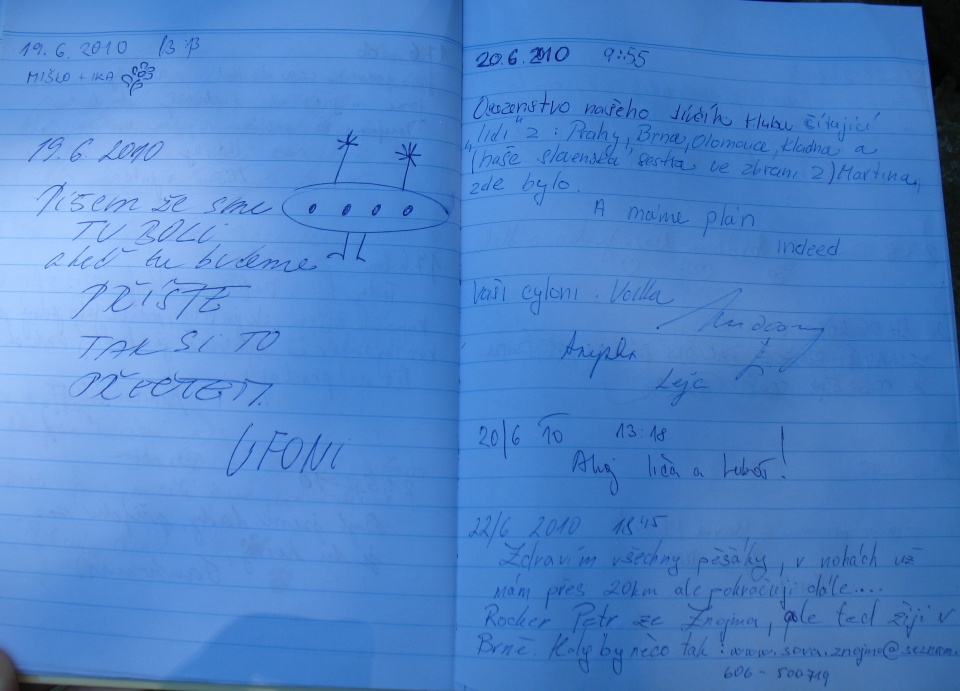 19. 6. 2010 13:13
MIŠKO + IKA
19. 6. 2010
Píšem že sme
TU BOLI
a keď tu budeme
PŘÍŠTĚ
TAK SI TO
PŘEČTEM.
UFONI
20.6.2010 9:55
Osazenstvo našeho klubu čítající
"lidi" z: Prahy, Brna, Olomouce, Kladna a
(naše slovenská sestra ve zbrani z) Martina,
zde bylo.
A máme plán
indeed
Vaši cyloni. Volka
Lejc
20/6 10 13:18
Ahoj a Luboš!
22/6 2010 18 45
Zdravím všechny pěšáky, v nohách už
mám přes 20km ale pokračuji dále....
Rocker Petr ze Znojma, ale teď žiji v
Brně. Kdyby něco tak: www.sova.znojmo@seznam.
606-500719